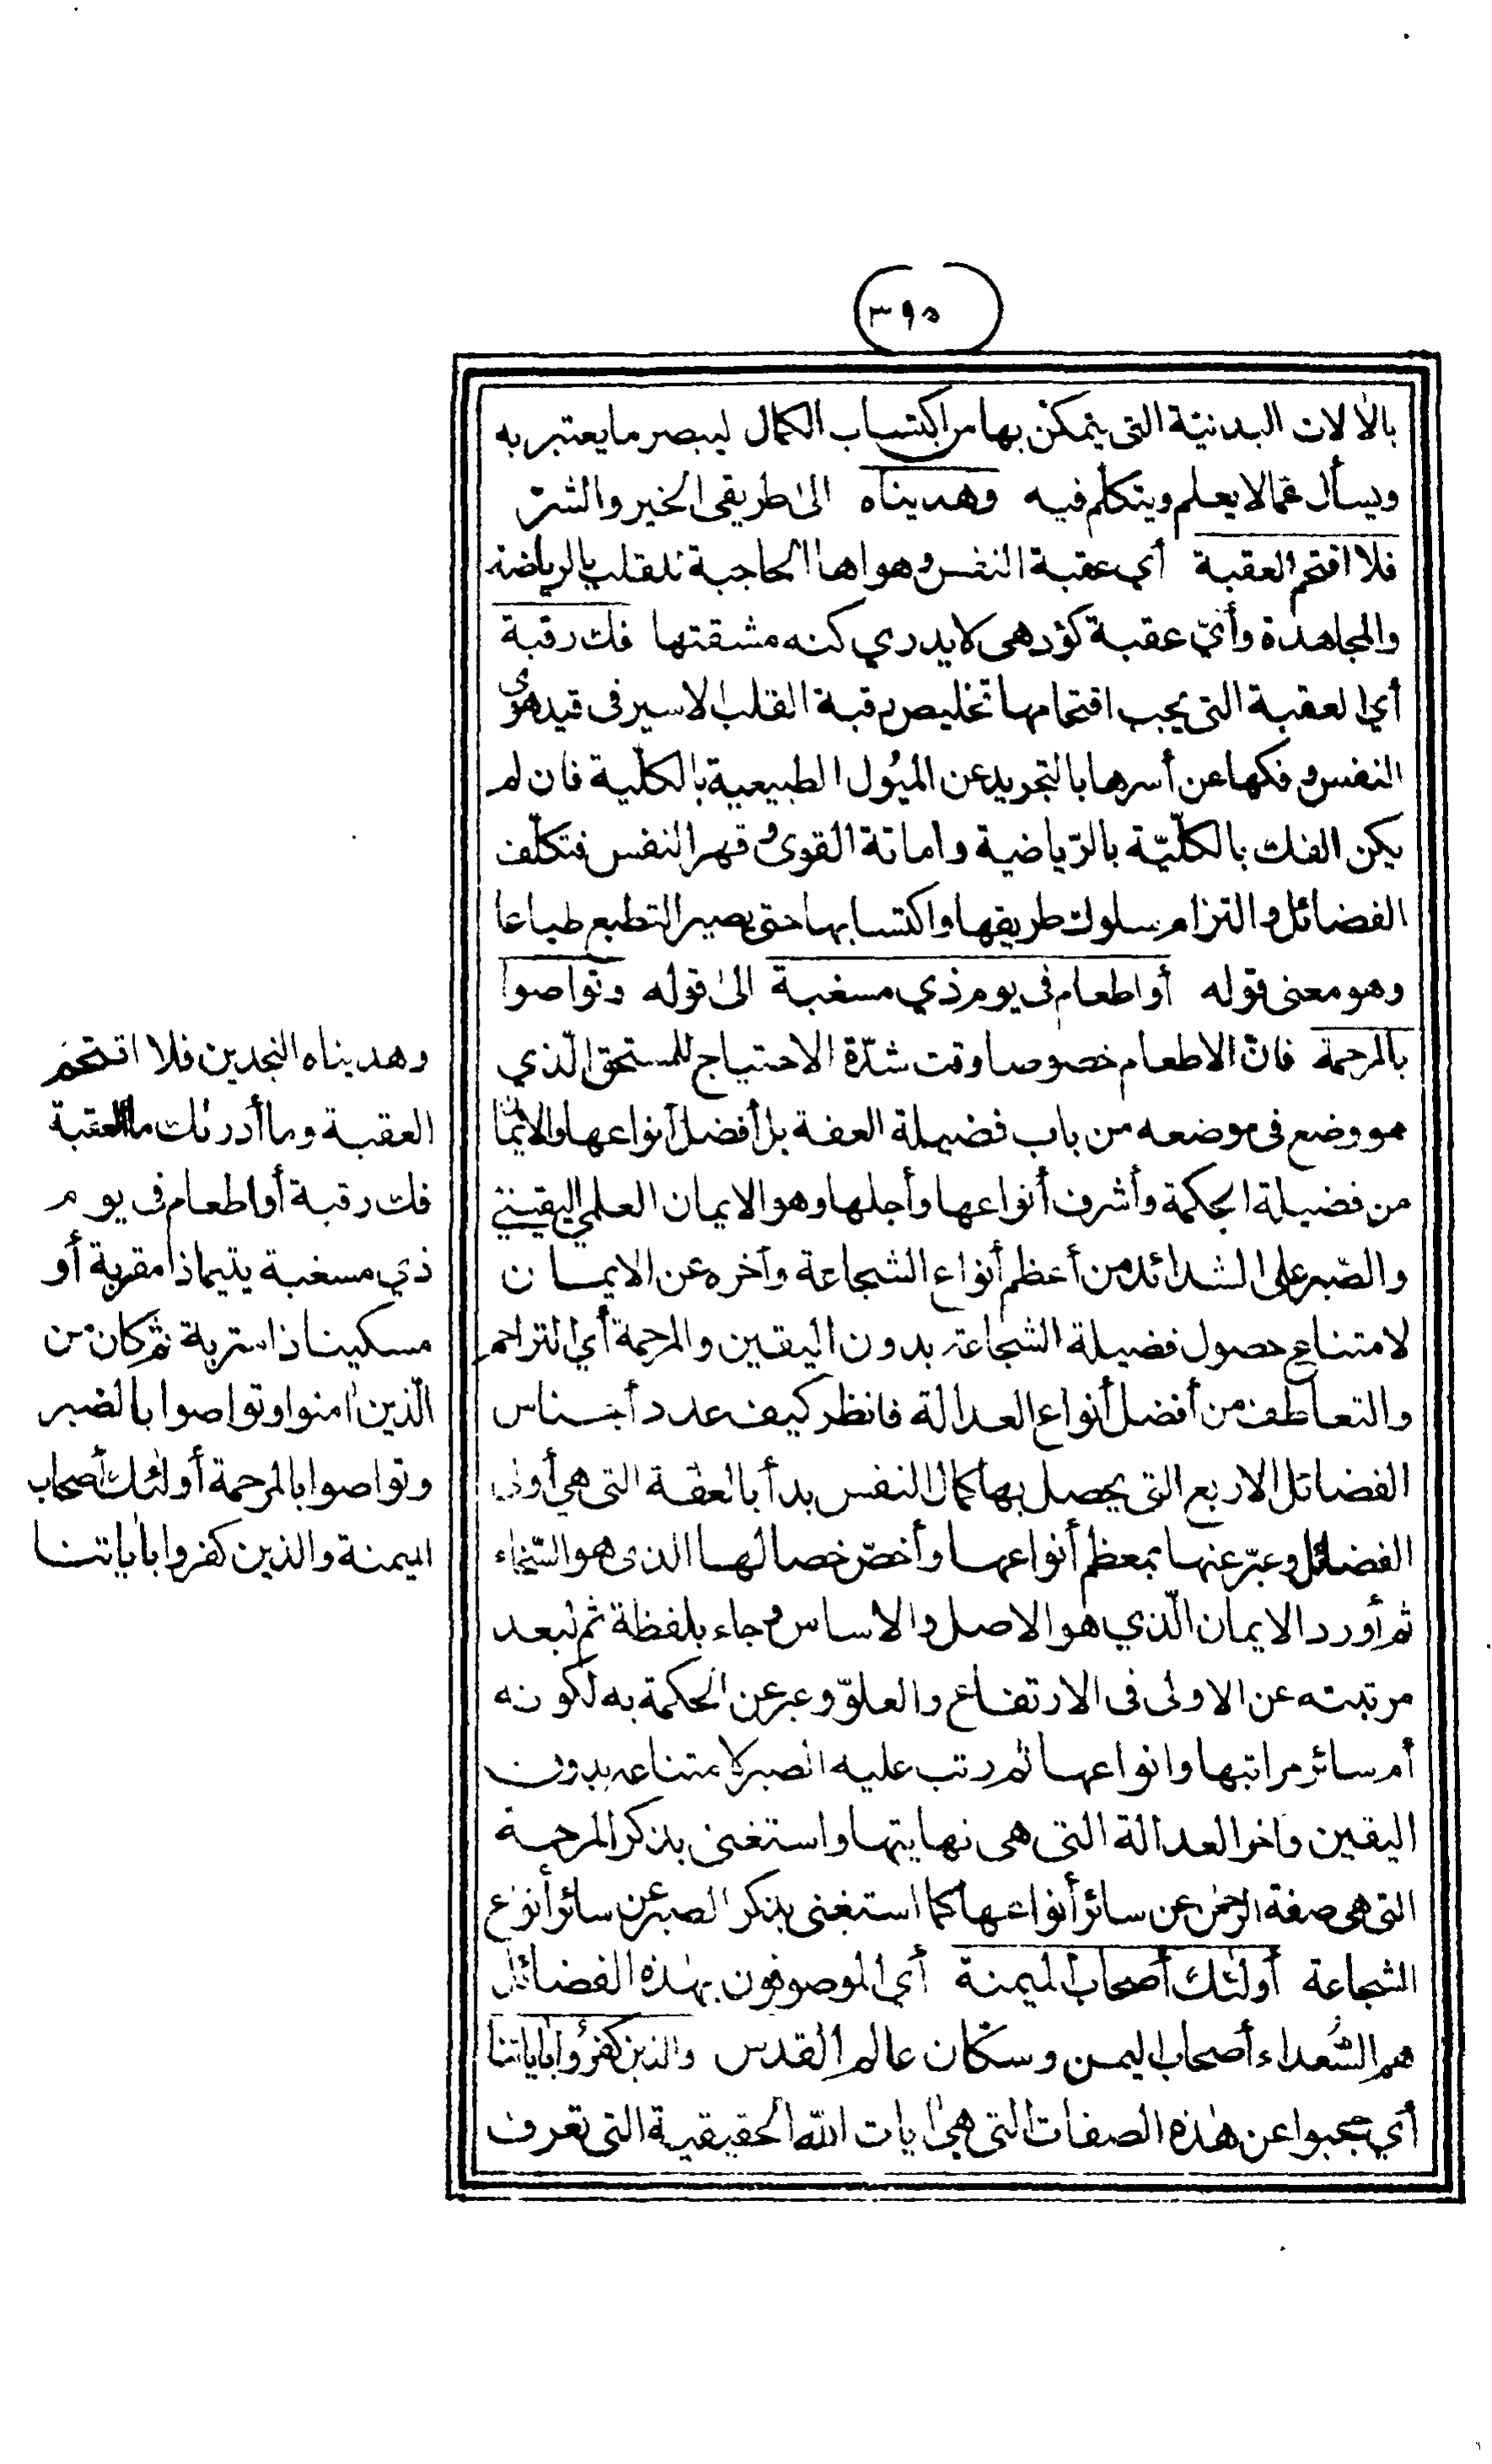 (٣٩٥)
بالالات البدنيّة التى يتمكّن بها من اكتساب الكمال ليبصر ما يعتبر به
ويسأل عمّا لا يعلم ويتكلم فيه وهديناه الى طريقى الخير والشرّ
فلا اقتحم العقبة أي عقبة النفس وهواها الحاجبة للقلب بالرياضة
والمجاهدة وأيّ عقبة كؤد هى لا يدري كنه مشقتها فك رقبة
أي العقبة التى يجب اقتحامها تخليص رقبة القلب الاسير فى قيد هوى
النفس وفكها عن أسرها بالتجريد عن الميُول الطبيعية بالكلّية فان لم
يكن الفك بالكلّيّة بالرّياضية واماتة القوى وقهر النفس فتكلّف
الفضائل والتزام سلوك طريقها واكتسابها حتى يصير التطبع طباعا
وهو معنى قوله أو اطعام فى يوم ذي مسغبة الى قوله وتواصوا
بالمرحمة فانّ الاطعام خصوصا وقت شدّة الاحتياج للمستحق الّذي
هو وضع فى موضعه من باب فضيلة العفة بل أفضل أنواعها والايمان
من فضيلة الحكمة وأشرف أنواعها وأجلها وهو الايمان العلمي اليقينيّ
والصّبر على الشدائد من أعظم أنواع الشجاعة وآخره عن الايمان
لامتناع حصول فضيلة الشجاعة بدون اليقين والمرحمة أي التراحم
والتعاطف من أفضل أنواع العدالة فانظر كيف عدد أجناس
الفضائل الاربع التى يحصل بها كمال النفس بدأ بالعفّة التى هي أولى
الفضائل وعبّر عنها بمعظم أنواعها وأخصّ خصالها الذى هو السّخاء
ثم أورد الايمان الّذي هو الاصل والاساس وجاء بلفظة ثم لبعد
مرتبته عن الاولى فى الارتفاع والعلوّ وعبر عن الحكمة به لكونه
أم سائر مراتبها وانواعها ثم رتب عليه الصبر لامتناعه بدون
اليقين وأخر العدالة التى هى نهايتها واستغنى بذكر المرحمة
التى هى صفة الرحمن عن سائر أنواعها كما استغنى بذكر الصبر عن سائر أنواع
الشجاعة أولئك أصحاب الميمنة أي الموصوفون بهذه الفضائل
هم السُّعداء أصحاب اليمن وسكّان عالم القدس والذين كفروا بآياتنا
أي حجبوا عن هذه الصفات التى هى آيات الله الحقيقية التى تعرف
وهديناه النجدين فلا اقتحم
العقبة وما أدرئك ما العقبة
فك رقبة أو اطعام فى يوم
ذي مسغبة يتيما ذا مقربة أو
مسكينا ذا متربة ثم كان من
الّذين آمنوا وتواصوا بالصبر
وتواصوا بالمرحمة أولئك أصحاب
الميمنة والذين كفروا بآياتنا